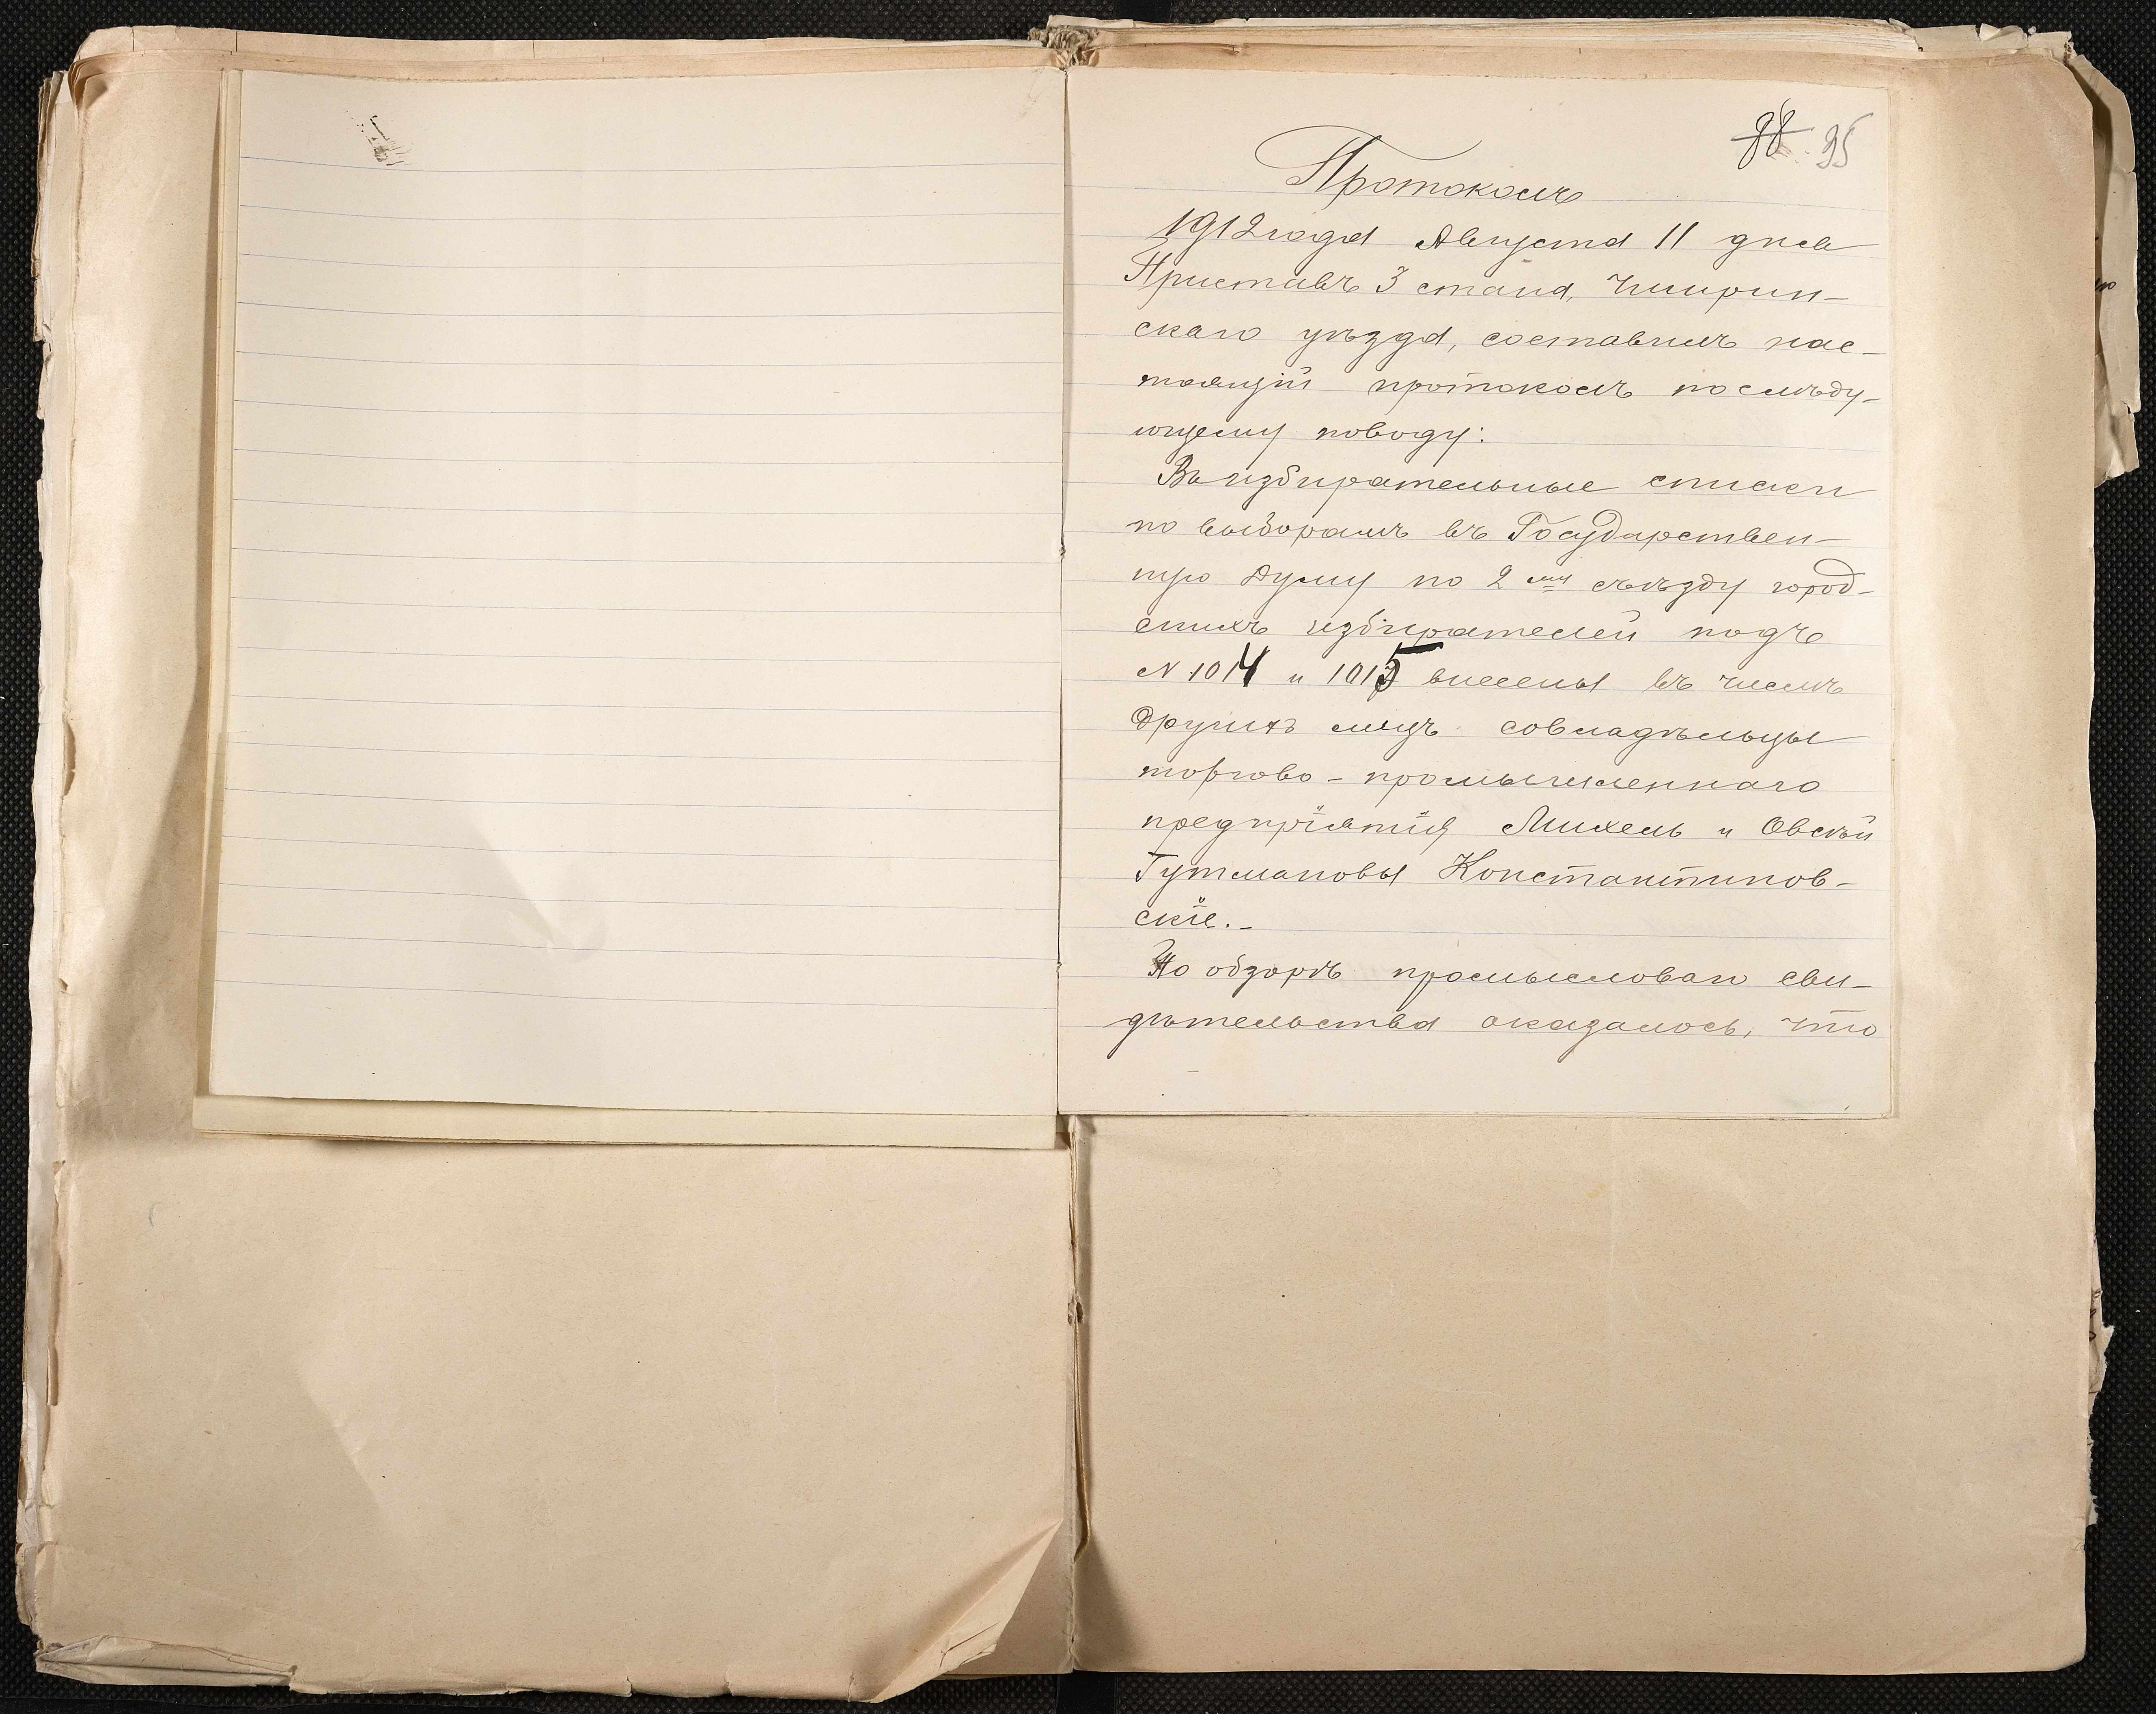 88 95
Протоколъ
1912 года Августа 11 дня
Приставъ 3 стана, Чигирин-
скаго уѣзда, составилъ нас-
тоящій протоколъ по слѣду-
ющему поводу:
Въ избирательные списки
по выборамъ въ Государствен-
ную Думу по 2 му съѣзду город-
скихъ избирателей подъ
N 1014 и 1015 внесены въ числѣ
другихъ лицъ совладѣльцы
торгово-промышленнаго
предпріятія Михель и Овсѣй
Гутмановы Константинов-
скіе.-
По обзорѣ промысловаго сви-
дѣтельства оказалось, что